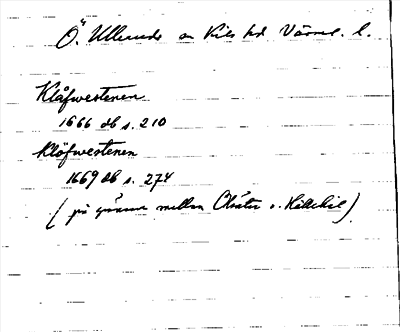 Ö. Ulleruds sn Kils hd Värml. l.
Klåfwestenen
1666 db s. 210
Klöfwestenen
1669 db s. 274
( på gränsen mellan o. )